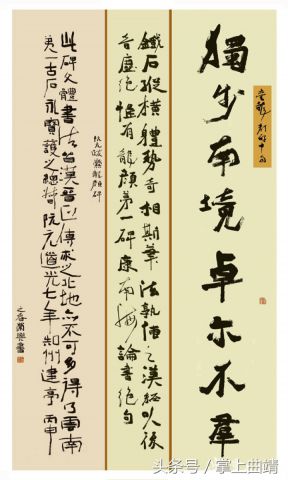 獨步南境卓尔不羣
鐵石縱橫體勢奇相斯筆法孰傳之漢經以後
音塵絕惟有龍顏第一碑康南海論書絕句
阮元跋爨龍顏碑
此碑文體書法皆漢晉正傳求之北地亦不可多得乃雲南
第一古石永寶護之總督阮元道光七年知州建亭 丙申
头条号 / 掌上曲靖